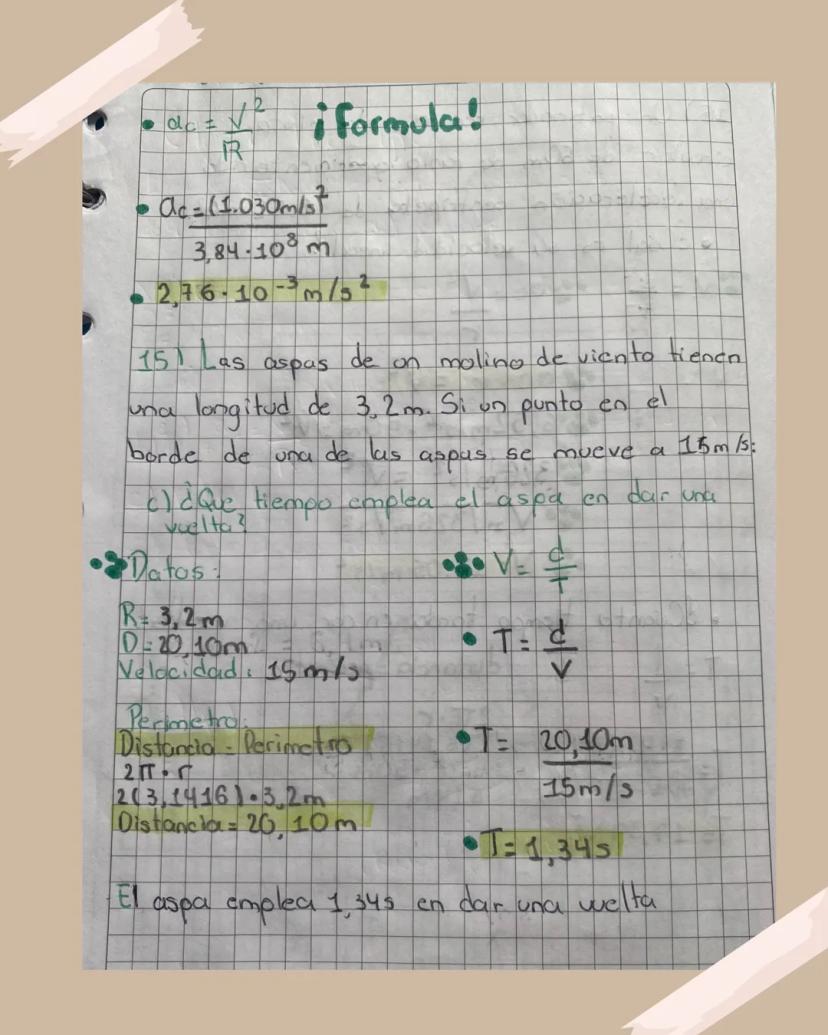 • ac = V²/R ¡Formula!
• ac = (1.030m/s)²
3,84·10⁸ m
• 2,76·10⁻³ m/s²
15) Las aspas de un molino de viento tienen
una longitud de 3,2m. Si un punto en el
borde de una de las aspas se mueve a 15m/s:
c) ¿Que tiempo emplea el aspa en dar una
vuelta?
Datos:
R= 3,2m
D=20,10m
Velocidad: 15m/s
Perimetro:
Distancia = Perimetro
2π·r
2(3,1416)·3,2m
Distancia= 20,10m
• V= d/T
• T= d/V
• T= 20,10m
15m/s
• T= 1,34s
El aspa emplea 1,34s en dar una vuelta